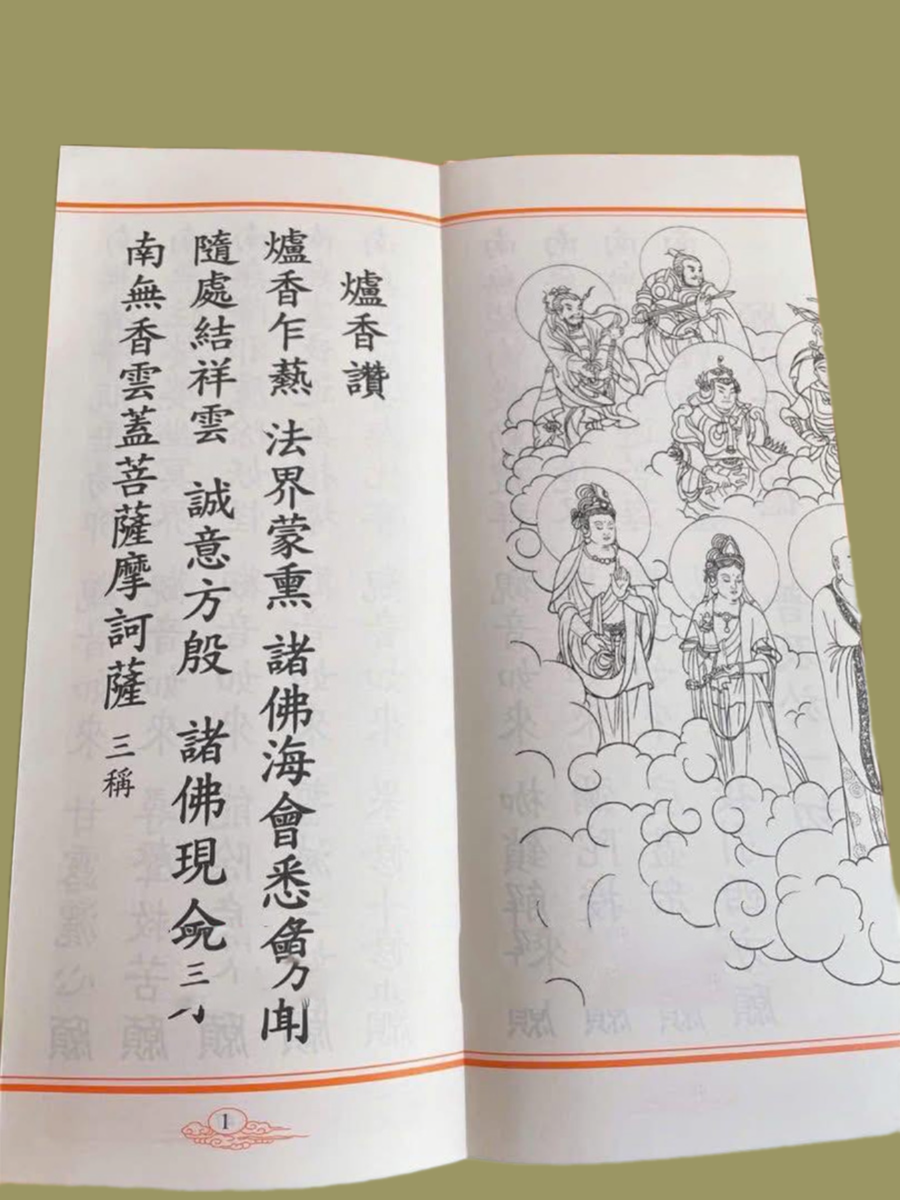 爐香讚
爐香乍爇 法界蒙熏 諸佛海會悉
隨處結祥雲 誠意方殷 諸佛現
南無香雲蓋菩薩摩訶薩 三稱
1